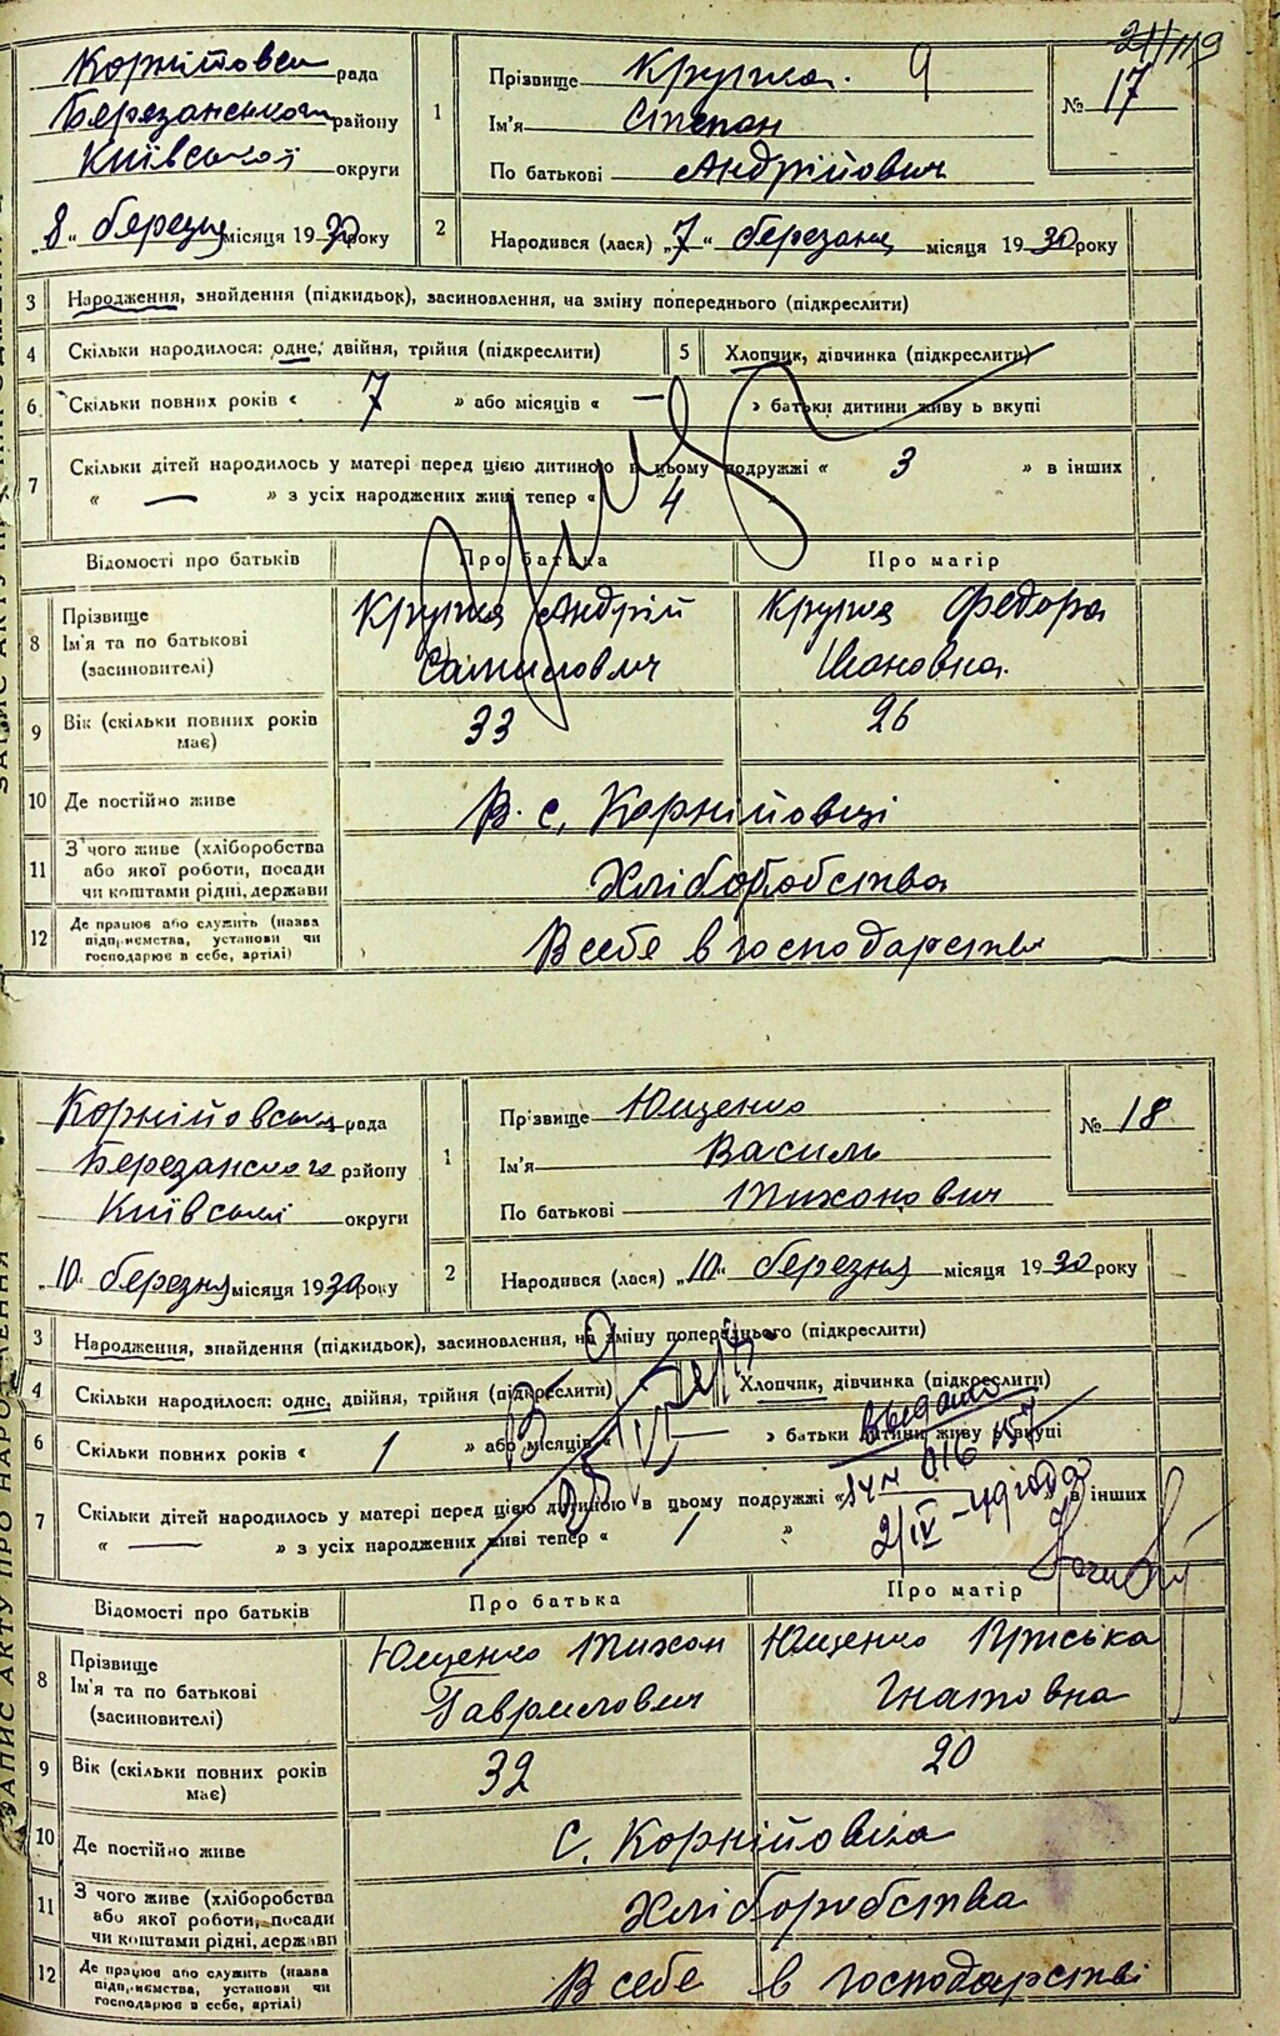 119
Корнійовська рада
Березанського району
Київської округи
„8“ березня місяця 1930 року
1
Прізвище Крупка. 9
Ім'я Степан
По батькові Андрійович
№ 17
2
Народився (лася) „7“ березня місяця 1930 року
3 Народження, знайдення (підкидьок), засиновлення, на зміну попереднього (підкреслити)
4 Скільки народилося: одне, двійня, трійня (підкреслити) 5 Хлопчик, дівчинка (підкреслити)
6 Скільки повних років « 7 » або місяців « — » батьки дитини живуть вкупі
7 Скільки дітей народилось у матері перед цією дитиною в цьому подружжі « 3 » в інших
« — » з усіх народжених живі тепер « 4 »
Відомості про батьків Про батька Про матір
8 Прізвище
Ім'я та по батькові
(засиновителі)
Крупка Андрій
Самилович
Крупка Федора
Івановна.
9 Вік (скільки повних років
має)
33 26
10 Де постійно живе В. с. Корнійовці
11 З чого живе (хліборобства
або якої роботи, посади
чи коштами рідні, держави
Хліборобства
12 Де працює або служить (назва
підприємства, установи чи
господарює в себе, артілі)
В себе в господарстві
ЗАПИС АКТУ ПРО НАРОДЖЕННЯ
Корнійовська рада
Березанского району
Київської округи
„10“ березня місяця 1930 року
1
Прізвище Ющенко
Ім'я Василь
По батькові Тихонович
№ 18
2
Народився (лася) „10“ березня місяця 1930 року
3 Народження, знайдення (підкидьок), засиновлення, на зміну попереднього (підкреслити)
4 Скільки народилося: одне, двійня, трійня (підкреслити) Хлопчик, дівчинка (підкреслити)
6 Скільки повних років « 1 » або місяців « — » батьки дитини живуть вкупі
выдано
016157
2/IV-49 года
7 Скільки дітей народилось у матері перед цією дитиною в цьому подружжі « » в інших
« — » з усіх народжених живі тепер « 1 »
Відомості про батьків Про батька Про матір
8 Прізвище
Ім'я та по батькові
(засиновителі)
Ющенко Тихон
Гаврилович
Ющенко Пріська
Гнатовна
9 Вік (скільки повних років
має)
32 20
10 Де постійно живе С. Корнійовка
11 З чого живе (хліборобства
або якої роботи, посади
чи коштами рідні, держави
Хліборобства
12 Де працює або служить (назва
підприємства, установи чи
господарює в себе, артілі)
В себе в господарстві